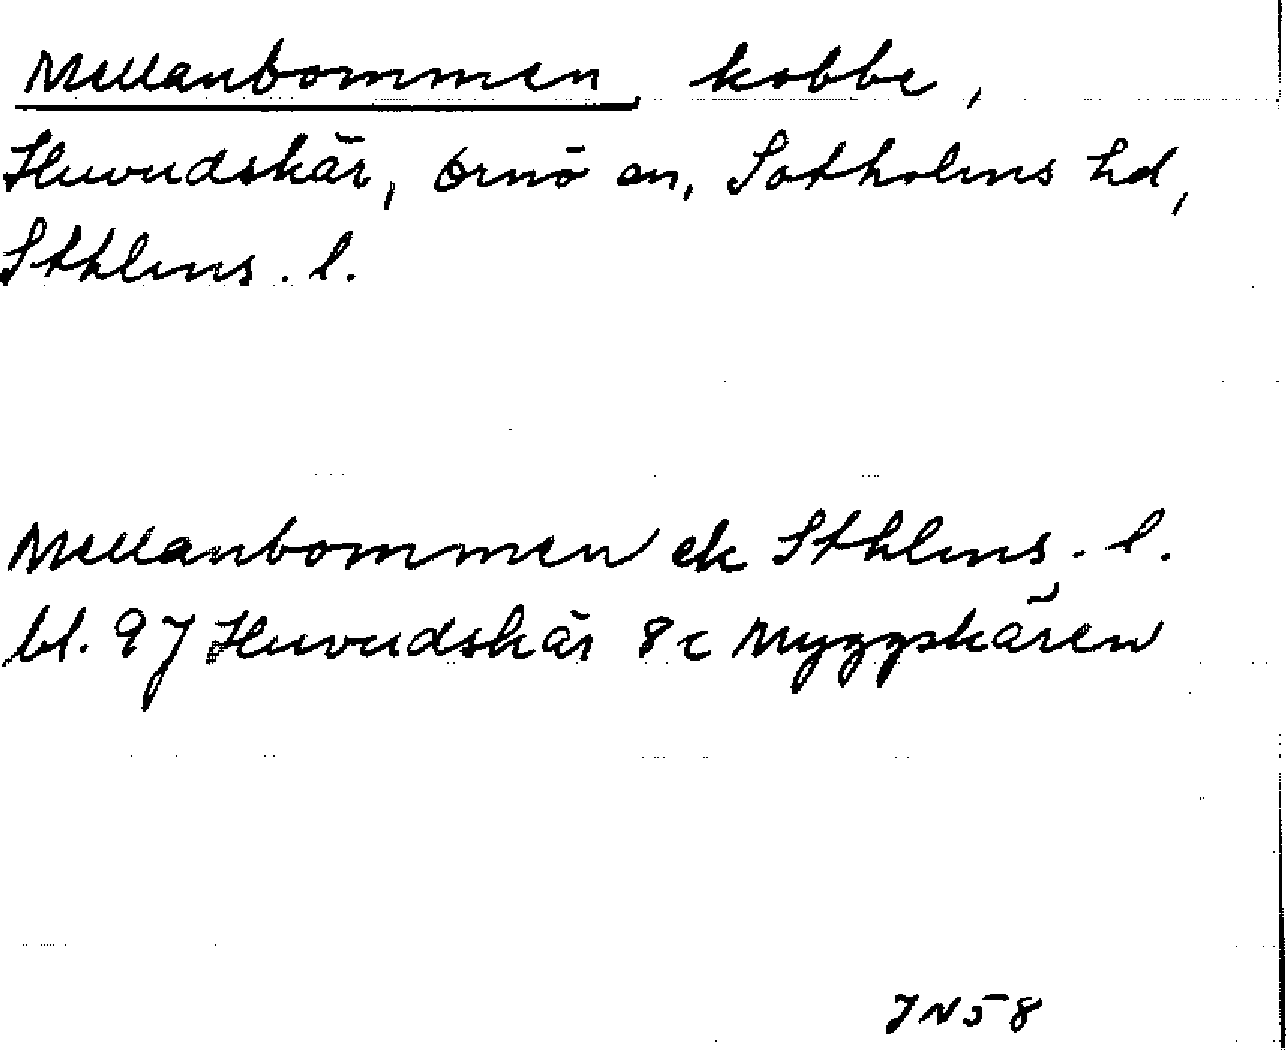 Mellanbommen, kobbe,
Huvudskär, Ornö sn, Sotholms hd,
Sthlms. l.
Mellanbommen ek Sthlms. l.
bl. 97 Huvudskär 8c Myggskären
JN58